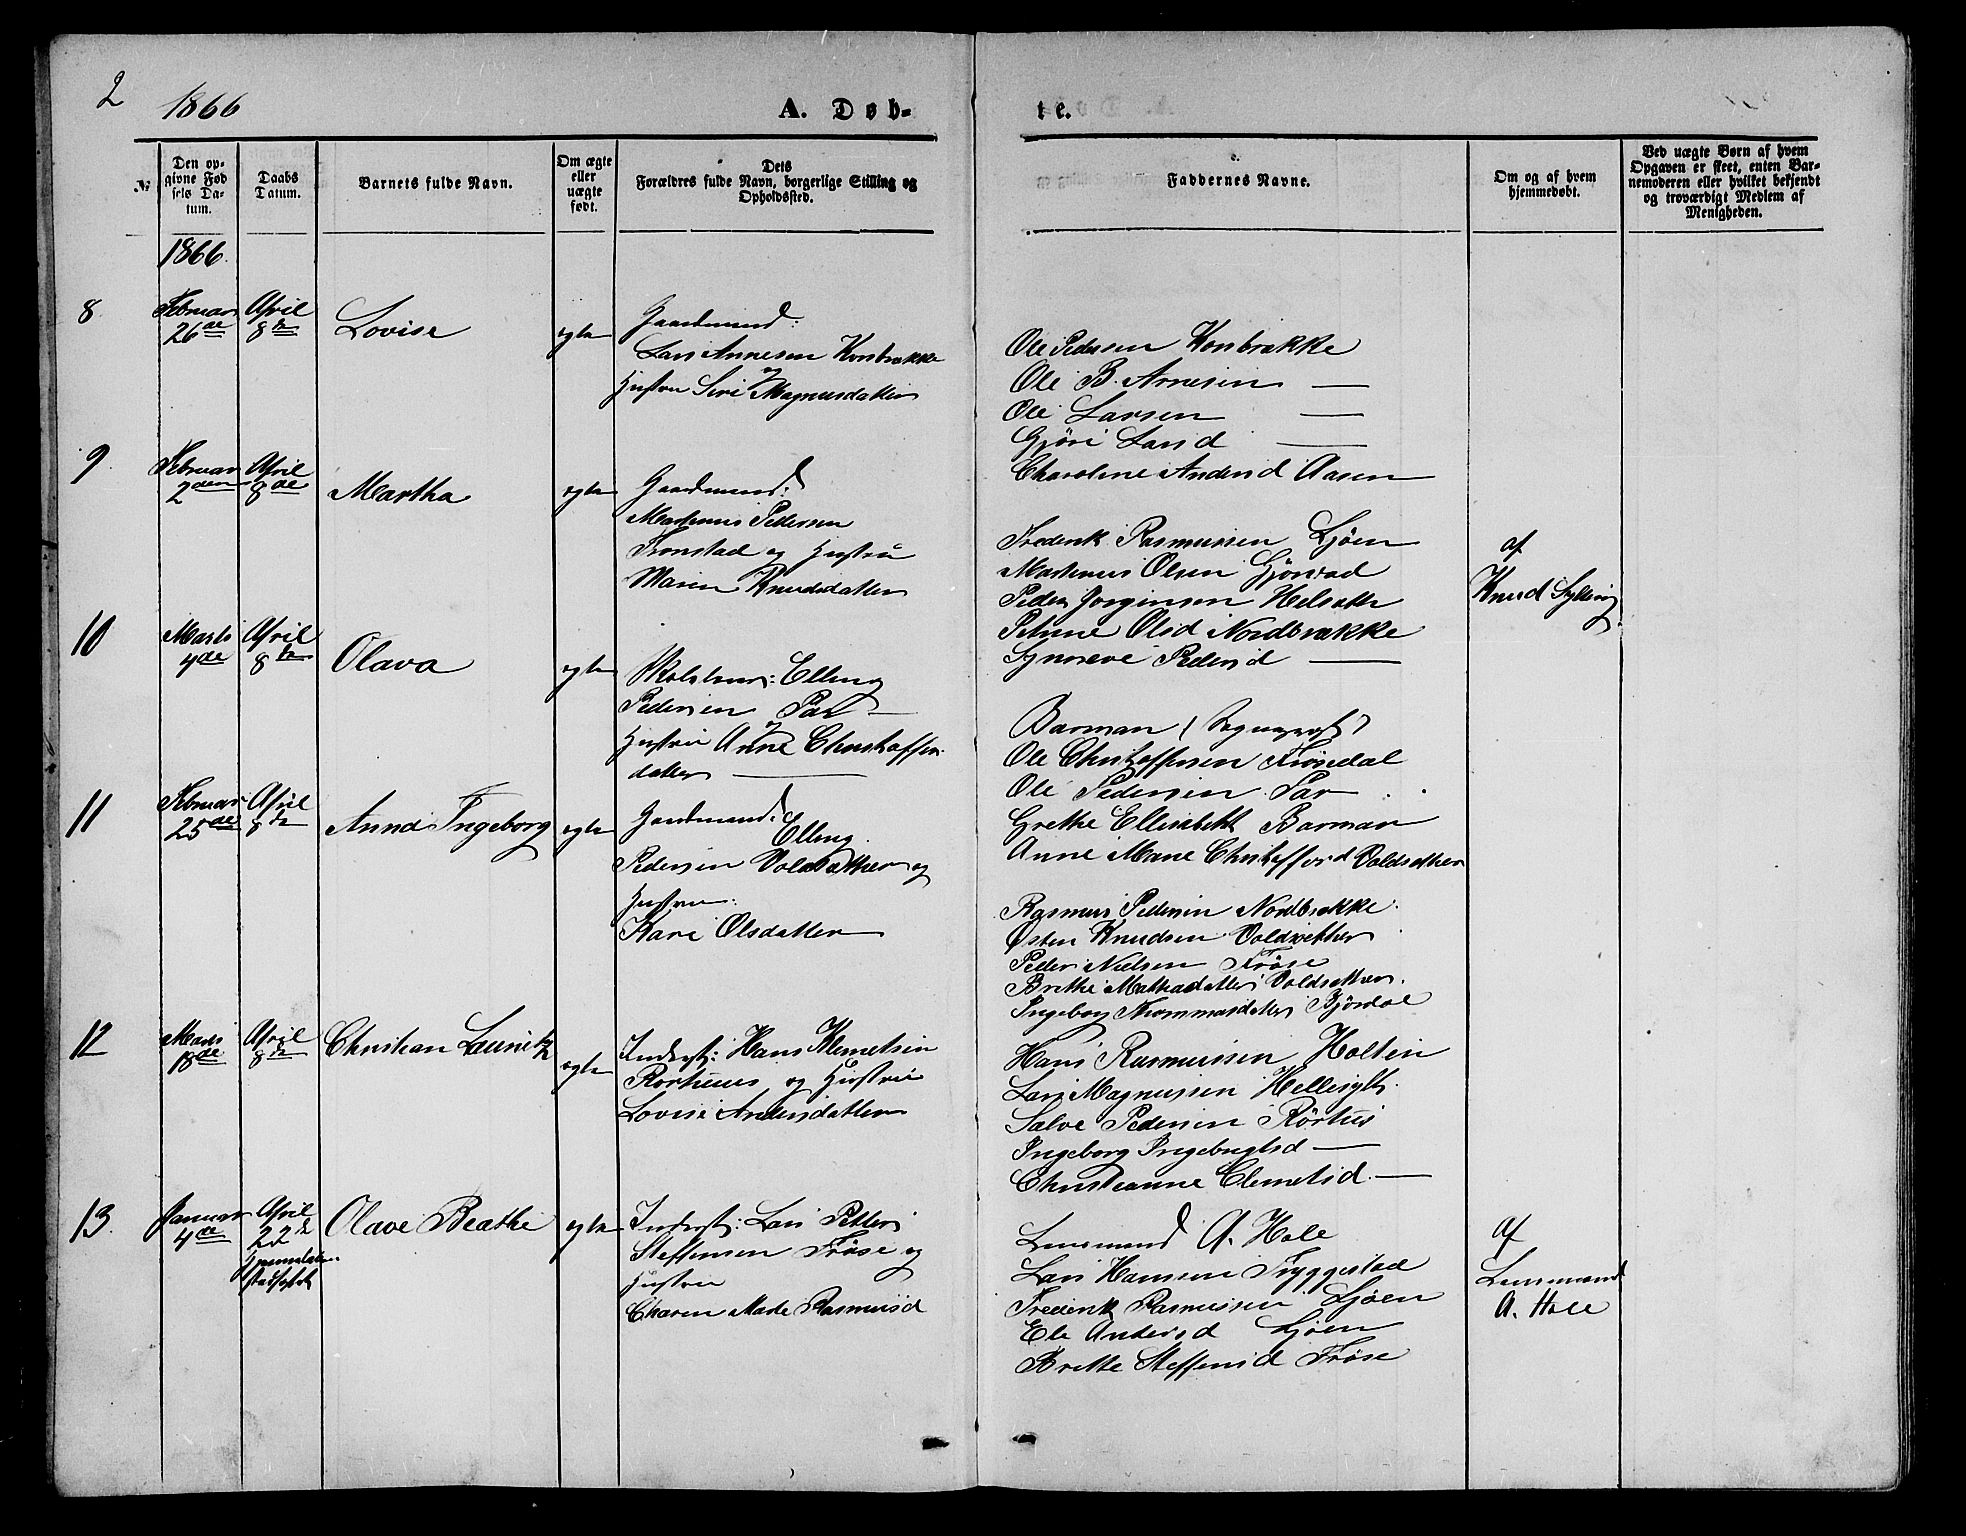 2
1866
A. Døb-
te.
№
Den op-
givne Fød
sels Da-
tum.
Daabs
Datum.
Barnets fulde Navn.
Om ægte
eller
uægte
født.
Dets
Forældres fulde Navn, borgerlige Stilling og
Opholdssted.
Faddernes Navne.
Om og af hvem
hjemmedøbt.
Ved uægte Børn af hvem
Opgaven er skeet, enten Bar-
nemoderen eller hvilket bekjendt
og troværdigt Medlem af
Menigheden.
1866.
8
Februar
26de
April
8de
Lovise
egte
Gaardmand:
Lars Annesen Korsbrække
og
Hustru Siri Magnusdatter
Ole Pedersen Korsbrække
Ole B. Arnesen —
Ole Larsen —
Gjøri Larsd —
Charoline Andersd Aasen
9.
Februar
2den
April
8de
Martha
egte
Gaardmand:
Marthinus Pedersen
Tronstad og Hustru
Maren Knudsdatter
Frederik Rasmussen Ljøen
Marthinus Olsen Gjørvad
Peder Jørgensen Helsæth
Petrine Olsd Nordbrække
Synneve Pedersd —
af
Knud Sylling
10
Marts
4de
April
8de
Olava
egte
Elling
Pedersen Par —
og
Hustru Anne Christoffers
datter —
Barman
Ole Christoffersen Frøsedal
Ole Pedersen Par
Grethe Ellisabeth Barman
Anne Marie Christoffersd Voldsæther
11
Februar
25de
April
8de
Anna Ingeborg
egte
Gaardmand:
Elling
Pedersen Voldsæther og
Hustru:
Kari Olsdatter
Rasmus Pedersen Nordbrække.
Østen Knudsen Voldsæther
Peder Nielsen Frøse
Brithe Mathiasdatter Voldsæther.
Ingeborg Thommasdatter Bjørdal
12
Marts
18de
April
8de
Christian Lauritz
egte
Inderst: Hans Klemetsen
Rørhuus og Hustru
Lovise Andersdatter
Hans Rasmussen Holten
Lars Magnussen Hellesylt.
Salve Pedersen Rørhus
Ingeborg Ingebrigtsd —
Christianne Clemetsd. —
13.
Januar
4de
April
22de
Hjemmedaaben
stadfæstet
Olave Beathe
egte
Inderst: Lars Petter
Steffensen Frøse og
Hustru
Charen Marie Rasmusd
Lensmand A. Hole
Lars Hansen Tryggestad
Frederik Rasmussen Ljøen
Ele Andersd Ljøen
Brithe Steffensd Frøse
af
Lensmand
A. Hole